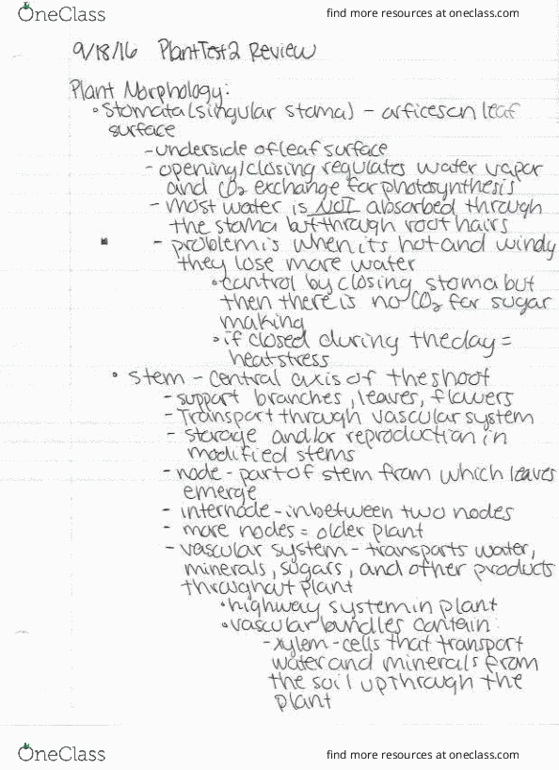 OneClass
find more resources at oneclass.com
9/18/16 Plant Test 2 Review
Plant Morphology:
• Stomata (singular stoma) - orficeson leaf
surface
- underside of leaf surface
- opening/closing regulates water vapor
and CO₂ exchange for photosynthesis
- most water is NOT absorbed through
the stoma but through root hairs
- problem is when its hot and windy
they lose more water
• control by closing stoma but
then there is no CO₂ for sugar
making
• if closed during the day =
heat stress
• stem - central axis of the shoot
- support branches, leaves, flowers
- Transport through vascular system
- storage and/or reproduction in
modified stems
- node - part of stem from which leaves
emerge
- internode - in between two nodes
- more nodes = older plant
- vascular system - transports water,
minerals, sugars, and other products
throughout plant
• highway system in plant
• vascular bundles contain:
- xylem - cells that transport
water and minerals from
the soil up through the
plant
OneClass
find more resources at oneclass.com